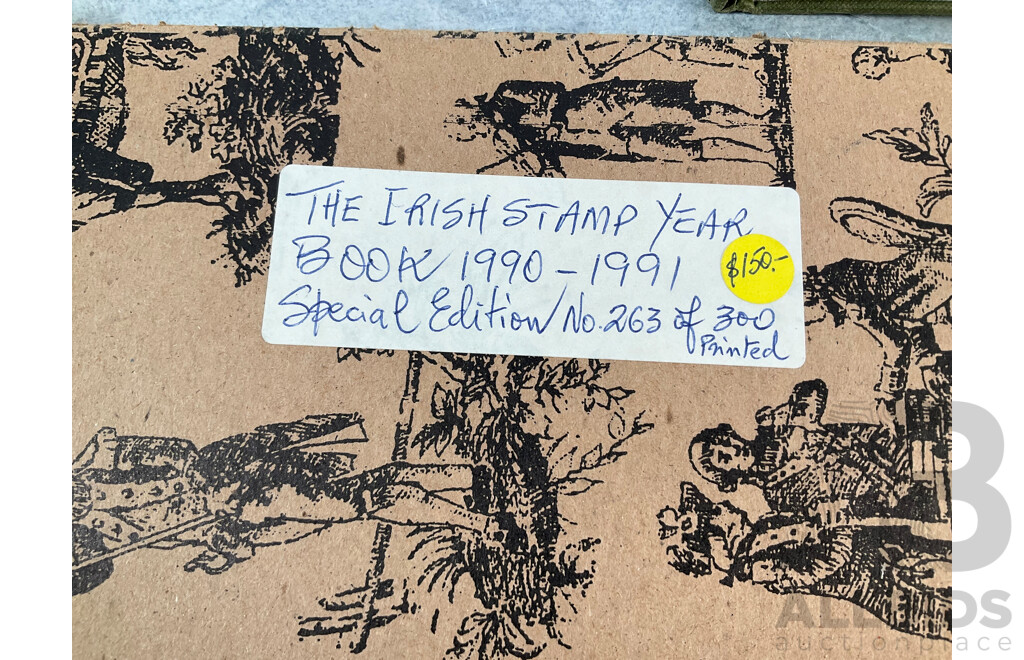 THE IRISH STAMP YEAR
BOOK 1990-1991
$150.-
Special Edition No. 263 of 300
Printed
ALLBIDS
auctionplace